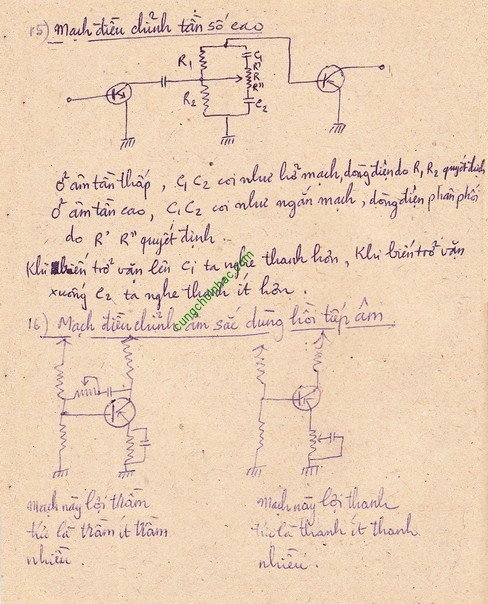 15) Mạch điều chỉnh tần số cao
R1
C1
R'
R
R"
R2
C2
Ở âm tần thấp, C1 C2 coi như hở mạch, dòng điện do R1 R2 quyết định
Ở âm tần cao, C1 C2 coi như ngắn mạch, dòng điện phân phối
do R' R" quyết định.
Khi biến trở vặn lên C1 ta nghe thanh hơn, Khi biến trở vặn
xuống C2 ta nghe thanh ít hơn.
cungchoinhac.com
16) Mạch điều chỉnh âm sắc dùng hồi tiếp âm
Mạch này lợi trầm
tức là trầm ít trầm
nhiều.
Mạch này lợi thanh
tức là thanh ít thanh
nhiều.